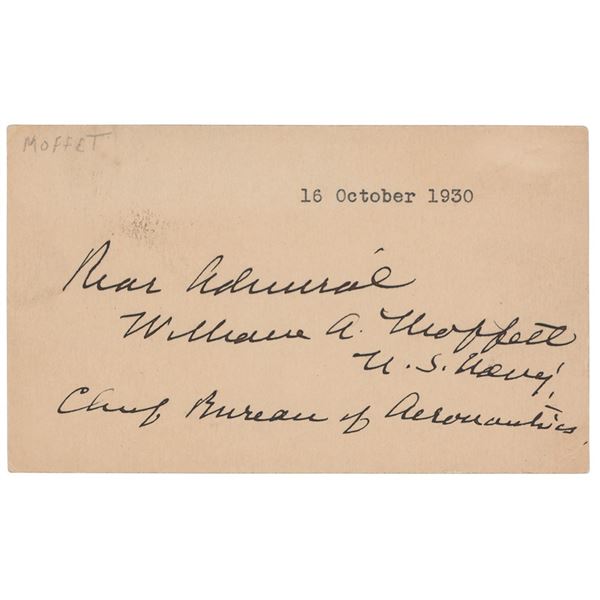 MOFFET
16 October 1930
Rear Admiral
William A. Moffett
U.S. Navy,
Chief Bureau of Aeronautics.